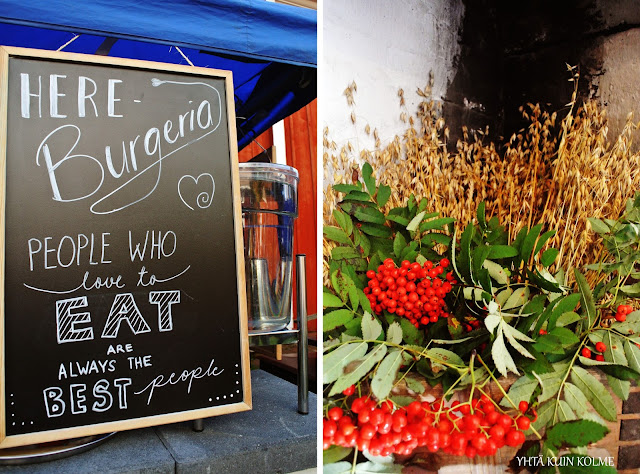 HERE-
Burgeria
PEOPLE WHO
love to
EAT
ARE
ALWAYS THE
BEST people
YHTÄ KUIN KOLME